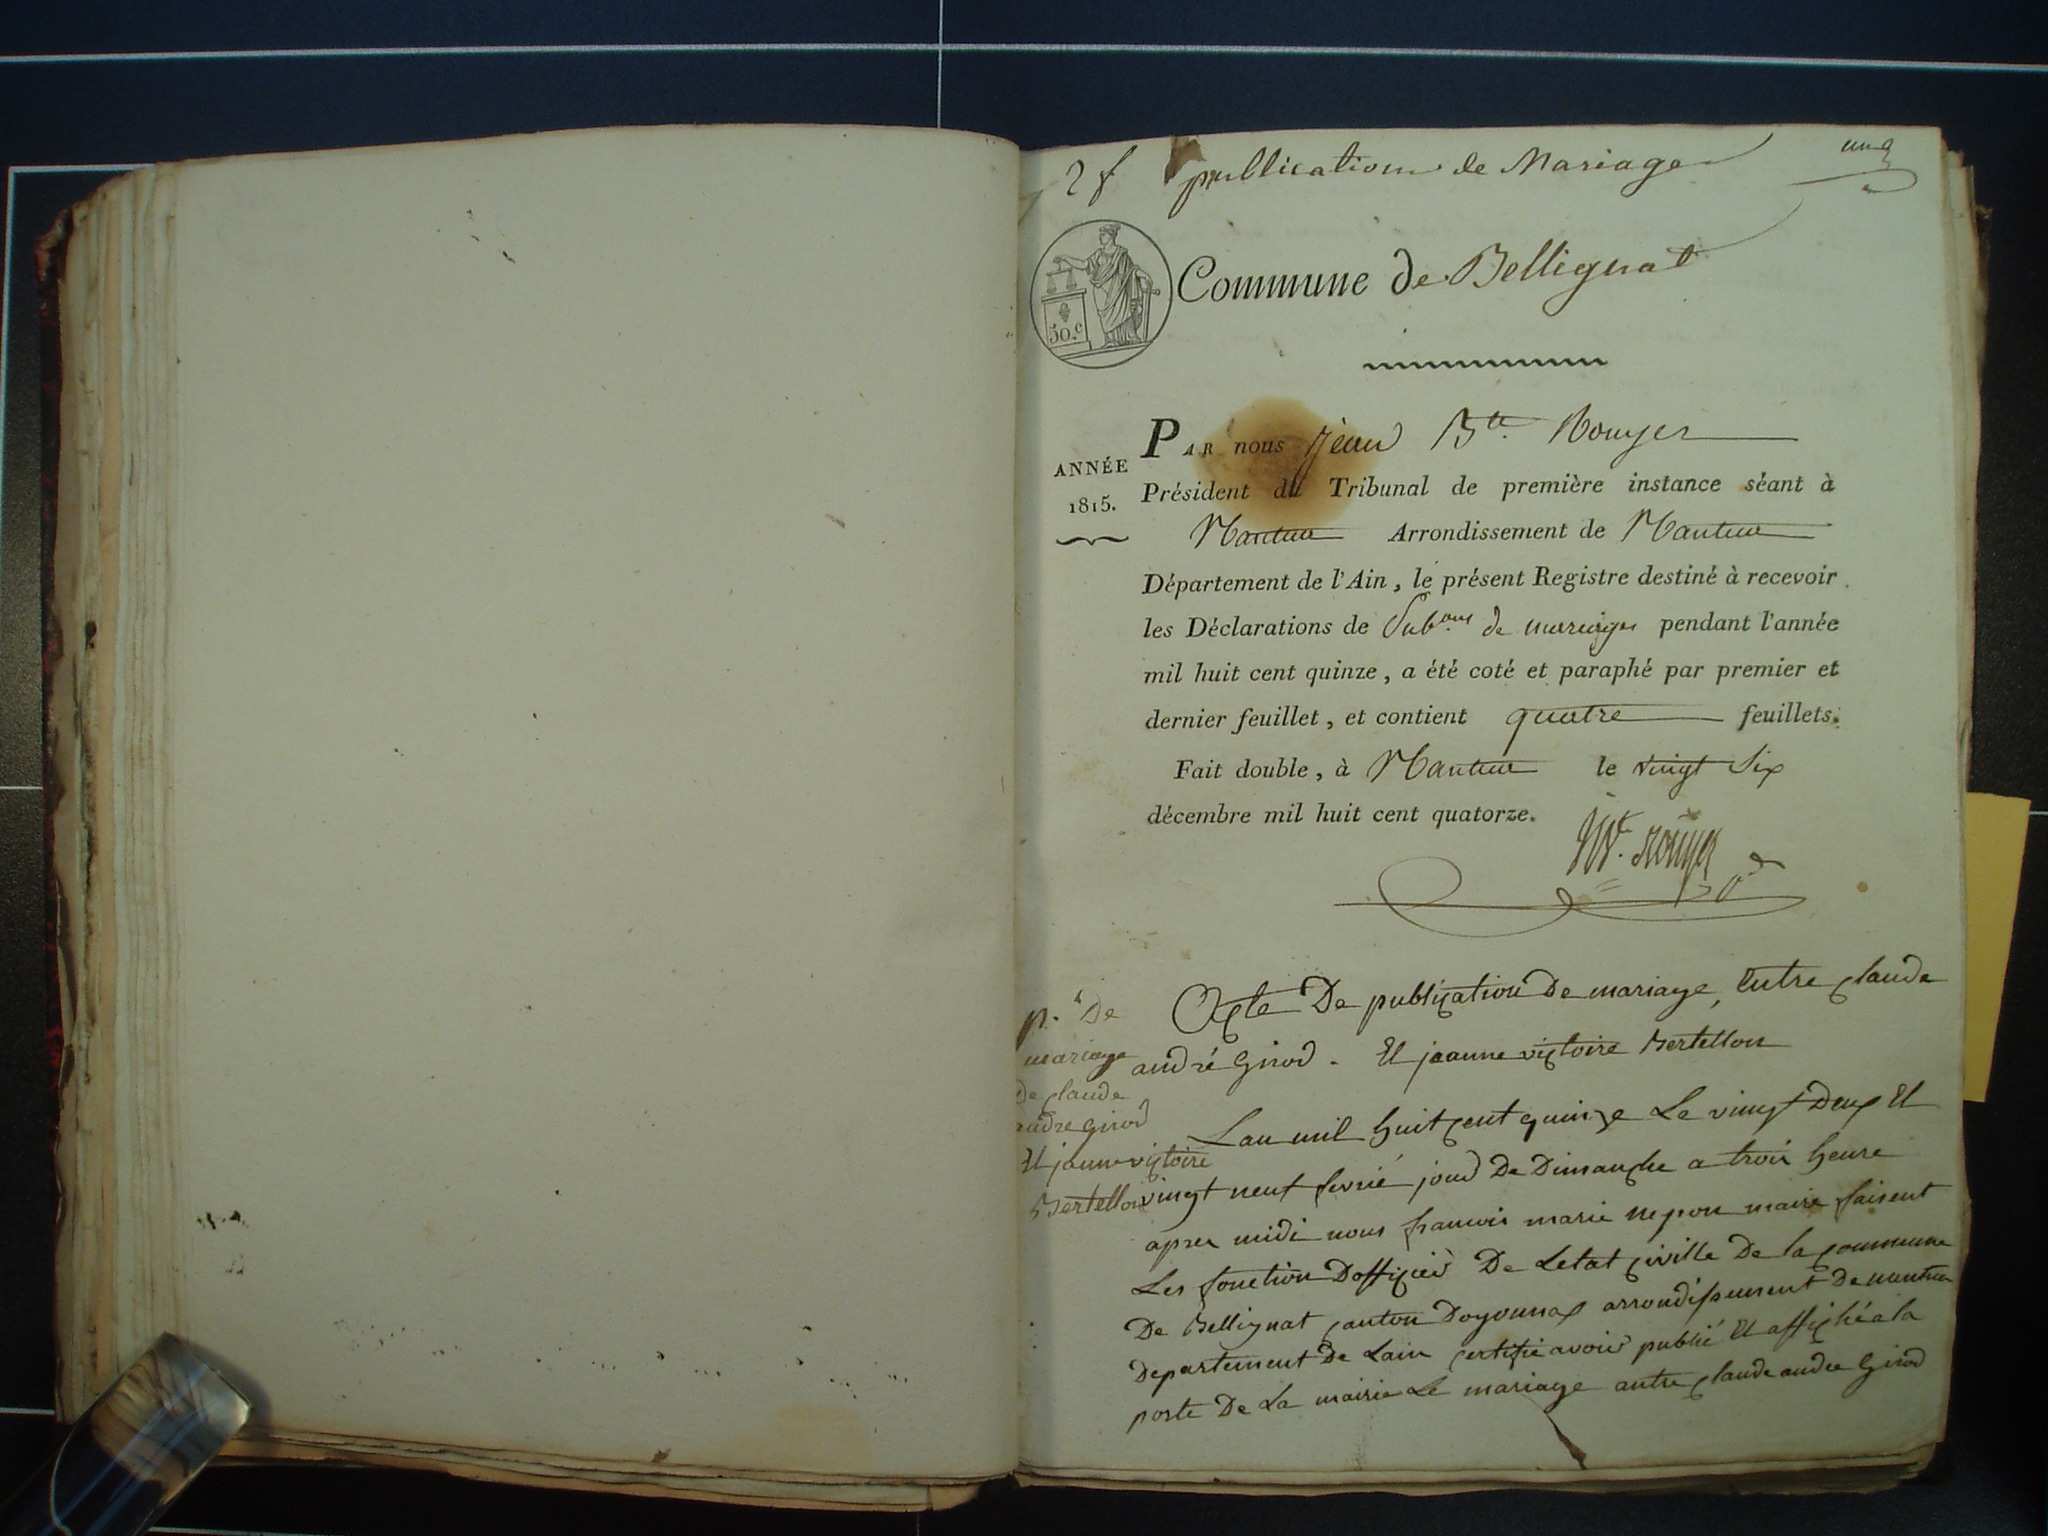 2 f publication de Mariage
un
Commune de Bellignat
50.c
ANNÉE
1815.
PAR nous Jean Bte. Rouyer
Président du Tribunal de première instance séant à
Nantua Arrondissement de Nantua
Département de l'Ain, le présent Registre destiné à recevoir
les Déclarations de Pub.ons de mariages pendant l'année
mil huit cent quinze, a été coté et paraphé par premier et
dernier feuillet, et contient quatre feuillets.
Fait double, à Nantua le vingt Six
décembre mil huit cent quatorze.
Rouyer
p. De
mariage
De claude
andre girod
Et jeanne victoire
Bertellon
Acte De publication De mariage, Entre claude
andré Girod. Et jeanne victoire Bertellon
Lan mil huit cent quinze Le vingt Deux Et
vingt neuf fevrié jour De Dimanche a trois heure
apres midi nous francois marie maire faisent
Les fonction Dofficier De Letat civille De la commune
De Bellignat canton Doyonnax arrondissement De nantua
Departement De Lain certifie avoir publié Et affiché a la
porte De La mairie Le mariage antre claude andre Girod